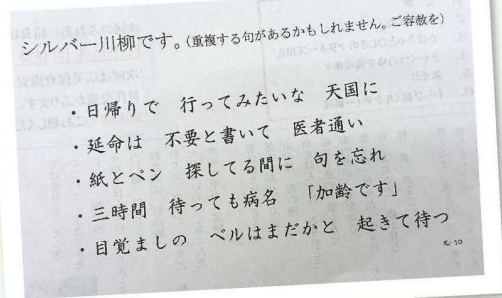 シルバー川柳です。(重複する句があるかもしれません。ご容赦を)
・日帰りで 行ってみたいな 天国に
・延命は 不要と書いて 医者通い
・紙とペン 探してる間に 句を忘れ
・三時間 待っても病名 「加齢です」
・目覚ましの ベルはまだかと 起きて待つ